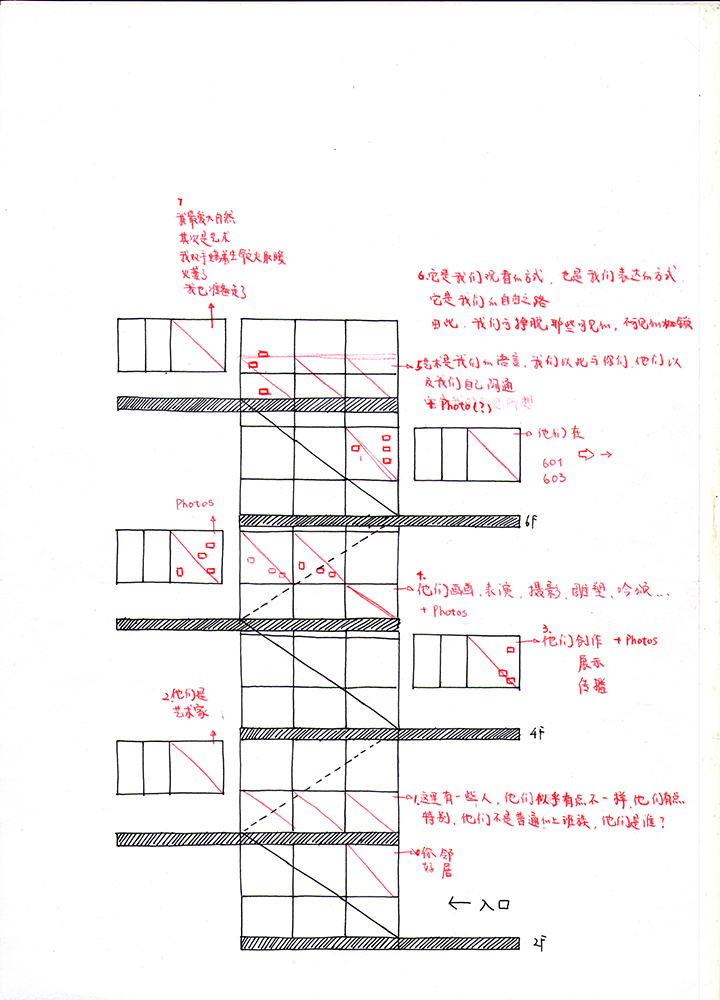 7
我最爱大自然
其次是艺术
我双手烤着生命之火取暖
火萎了
我也准备走了
6.它是我们观看的方式，也是我们表达的方式
它是我们的自由之路
由此，我们方挣脱那些可见的，不可见的枷锁
5.艺术是我们的语言，我们以此与你们、他们以
及我们自己沟通
+ Photo(?)
他们在
601
603
6F
Photos
4.
他们画画、表演、摄影、雕塑、吟颂...
+ Photos
3.
他们创作 + Photos
展示
传播
2.他们是
艺术家
4F
1.这里有一些人，他们似乎有点不一样，他们有点
特别，他们不是普通的上班族，他们是谁？
你邻
好居
← 入口
2F